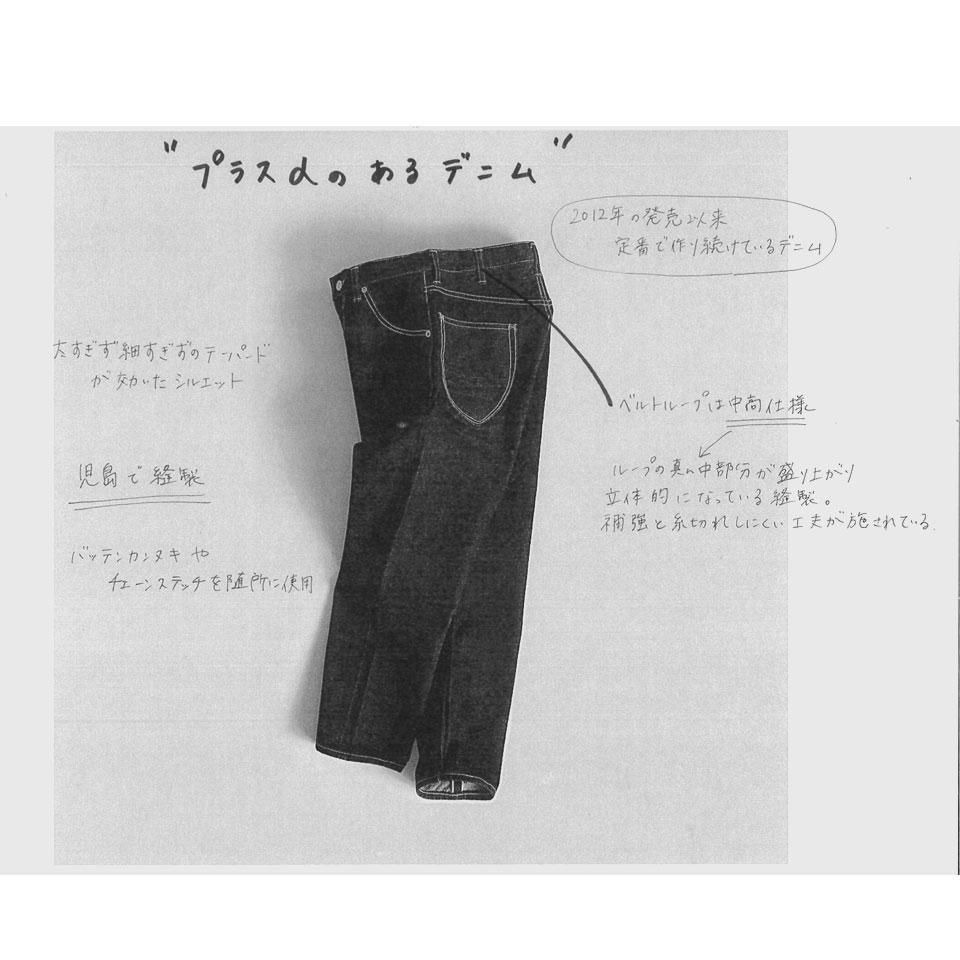 "プラスαのあるデニム"
2012年の発売以来
定番で作り続けているデニム
太すぎず細すぎずのテーパード
が効いたシルエット
ベルトループは中高仕様
ループの真ん中部分が盛り上がり
立体的になっている縫製。
補強と糸切れしにくい工夫が施されている。
児島で縫製
バッテンカンヌキや
チェーンステッチを随所に使用